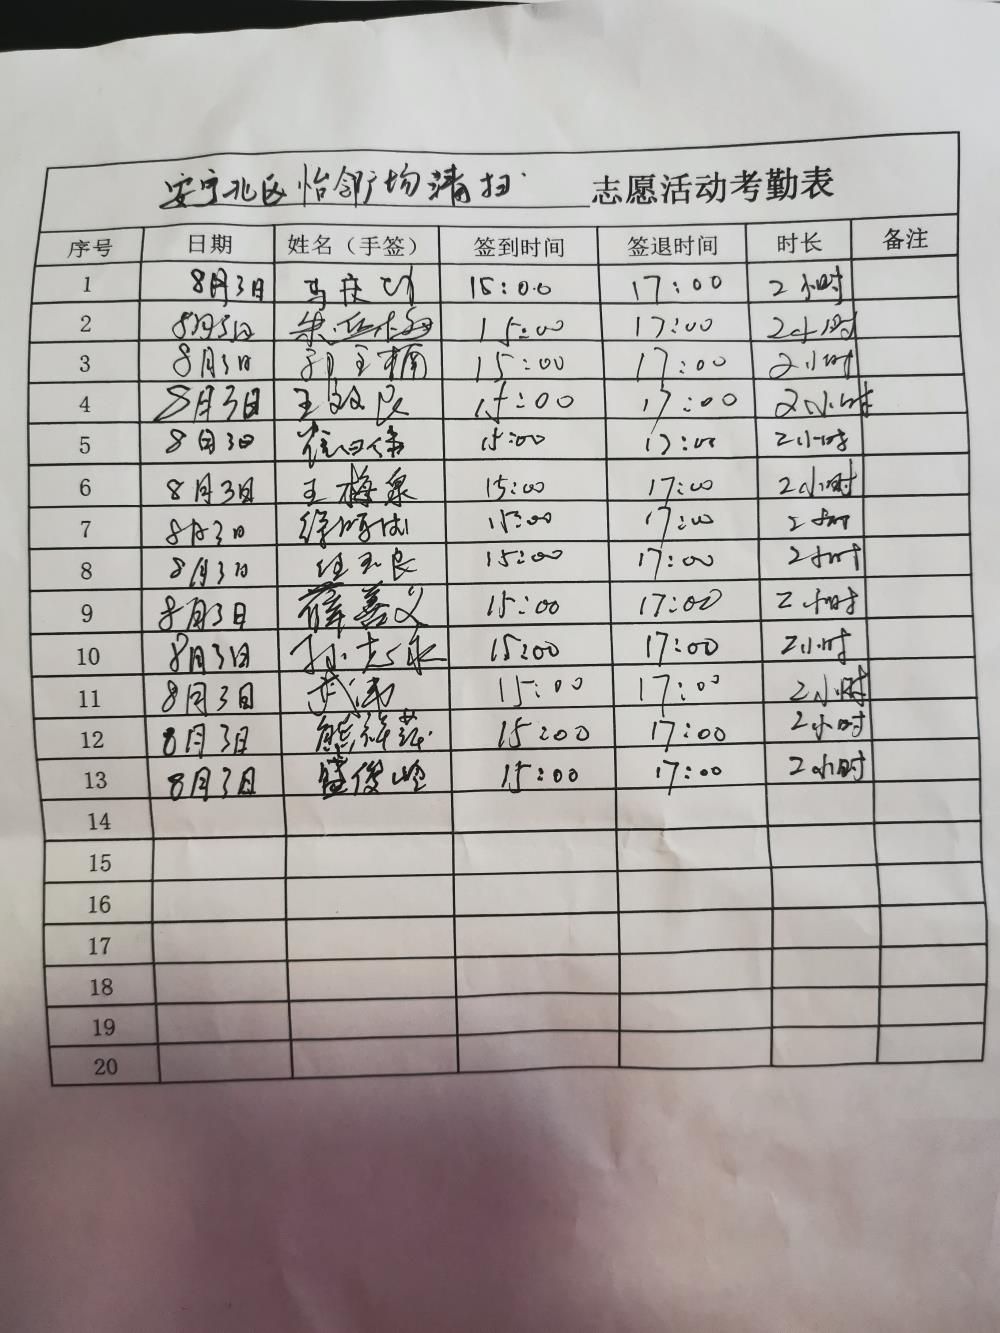 安宁北区怡邻广场清扫 志愿活动考勤表
序号 日期 姓名（手签） 签到时间 签退时间 时长 备注
1 8月3日 15:00 17:00 2小时
2 8月3日 15:00 17:00 2小时
3 8月3日 15:00 17:00 2小时
4 8月3日 王政民 15:00 17:00 2小时
5 8月3日 15:00 17:00 2小时
6 8月3日 王梅泉 15:00 17:00 2小时
7 8月3日 15:00 17:00 2小时
8 8月3日 15:00 17:00 2小时
9 8月3日 薛喜义 15:00 17:00 2小时
10 8月3日 15:00 17:00 2小时
11 8月3日 15:00 17:00 2小时
12 8月3日 15:00 17:00 2小时
13 8月3日 15:00 17:00 2小时
14
15
16
17
18
19
20